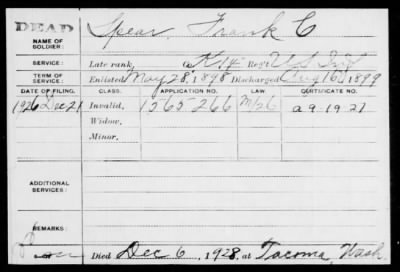 DEAD
NAME OF SOLDIER: Spear, Frank C
SERVICE: Late rank, Co. K 14 Reg't U S Inf
TERM OF SERVICE: Enlisted May 28, 1898 Discharged Aug 16, 1899
DATE OF FILING. CLASS. APPLICATION NO. LAW CERTIFICATE NO.
1926 Dec 21 Invalid, 1565266 M/26 a 9 19 27
Widow,
Minor.
ADDITIONAL SERVICES:
REMARKS:
Died Dec 6, 1928, at Tacoma, Wash.